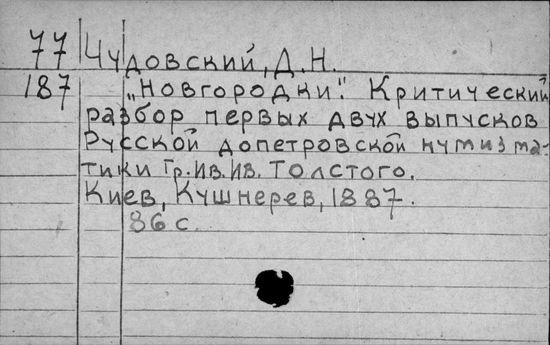 77 Чудовский, Д.Н.
187 „Новгородки". Критический
разбор первых двух выпусков
Русской допетровской нумизма-
тики Гр. Ив. Ив. Толстого.
Киев, Кушнерев, 1887.
86 с.